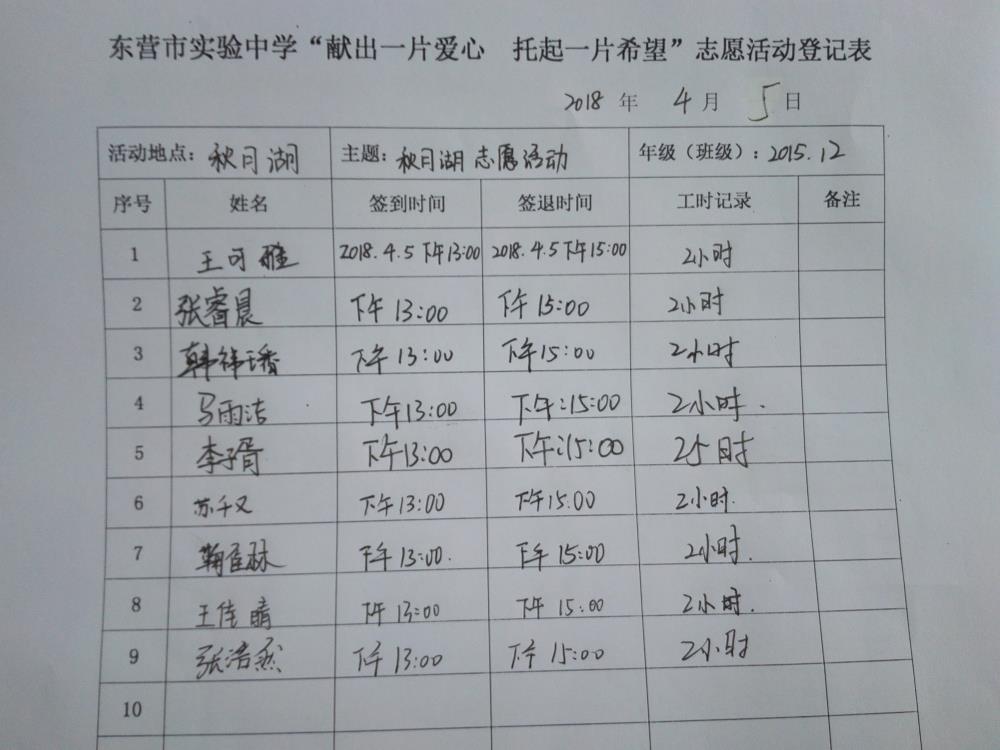 东营市实验中学“献出一片爱心 托起一片希望”志愿活动登记表
2018 年 4 月 5 日
活动地点：秋月湖 主题：秋月湖志愿活动 年级（班级）：2015.12
序号 姓名 签到时间 签退时间 工时记录 备注
1 王可雅 2018.4.5 下午13:00 2018.4.5 下午15:00 2小时
2 张睿晨 下午 13:00 下午 15:00 2小时
3 韩祎 下午 13:00 下午15:00 2小时
4 马雨洁 下午13:00 下午:15:00 2小时.
5 李子胥 下午13:00 下午:15:00 2小时
6 苏千又 下午13:00 下午15:00 2小时.
7 鞠 林 下午13:00. 下午 15:00 2小时.
8 王佳晴 下午 13:00 下午 15:00 2小时.
9 张浩然 下午 13:00 下午 15:00 2小时
10